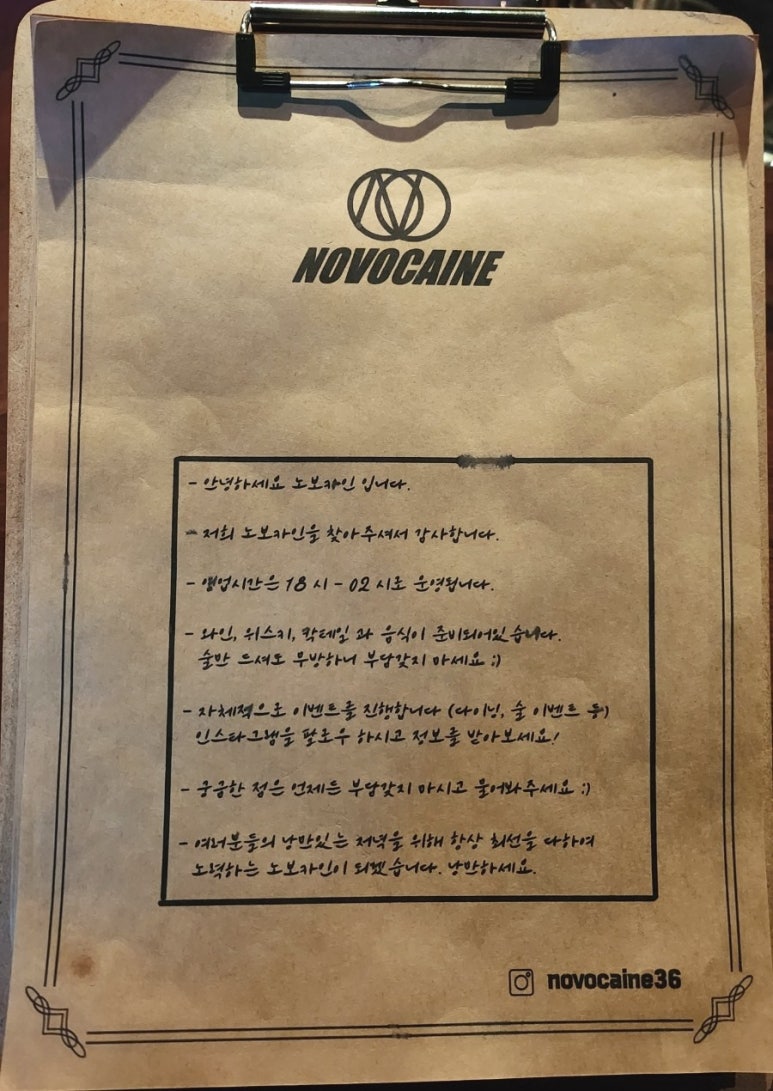 NOVOCAINE
- 안녕하세요 노보카인 입니다.
- 저희 노보카인을 찾아주셔서 감사합니다.
- 영업시간은 18시 - 02시로 운영됩니다.
- 와인, 위스키, 칵테일 과 음식이 준비되어있습니다.
술만 드셔도 무방하니 부담갖지 마세요 ;)
- 자체적으로 이벤트를 진행합니다 (다이닝, 술 이벤트 등)
인스타그램을 팔로우 하시고 정보를 받아보세요!
- 궁금한 점은 언제든 부담갖지 마시고 물어봐주세요 :)
- 여러분들의 낭만있는 저녁을 위해 항상 최선을 다하여
노력하는 노보카인이 되겠습니다. 낭만하세요.
novocaine36